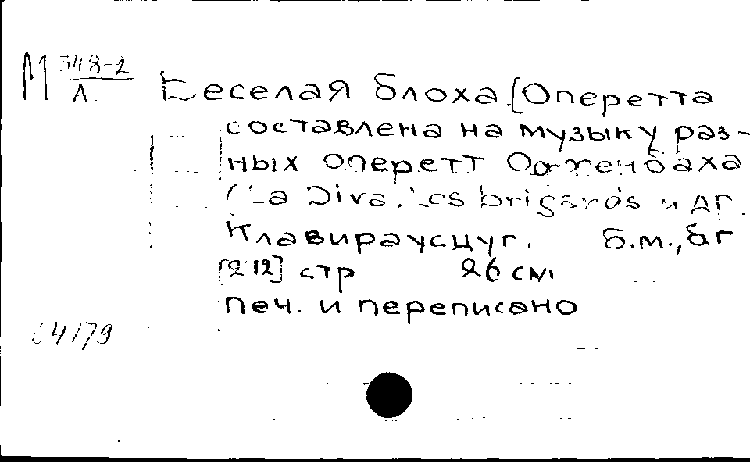 М 348-2
Л.
Веселая блоха [Оперетта
составлена на музыку раз-
ных оперетт Оффенбаха
(La Diva, Les brigands и др.
Клавираусцуг. Б.м., бг
[212] стр 26 см
печ. и переписано
64179